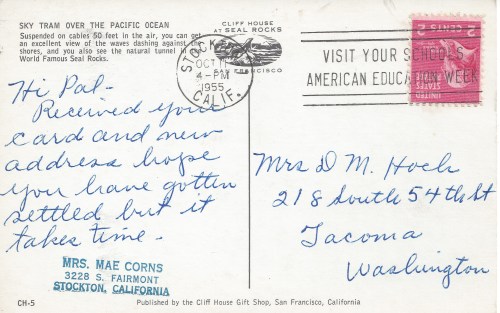 SKY TRAM OVER THE PACIFIC OCEAN
Suspended on cables 50 feet in the air, you can get
an excellent view of the waves dashing against the
shores, and you also see the natural tunnel
World Famous Seal Rocks.
CLIFF HOUSE
AT SEAL ROCKS
SAN FRANCISCO
OCT 11
4-PM
1955
CALIF.
VISIT YOUR SCHOOLS
AMERICAN EDUCATION WEEK
2 CENTS 2
UNITED
STATES
POSTAGE
Hi Pal-
Received your
card and new
address hope
you have gotten
settled but it
takes time-
Mrs D M. Hoch
218 South 54th St
Tacoma
Washington
MRS. MAE CORNS
3228 S. FAIRMONT
STOCKTON, CALIFORNIA
CH-5
Published by the Cliff House Gift Shop, San Francisco, California